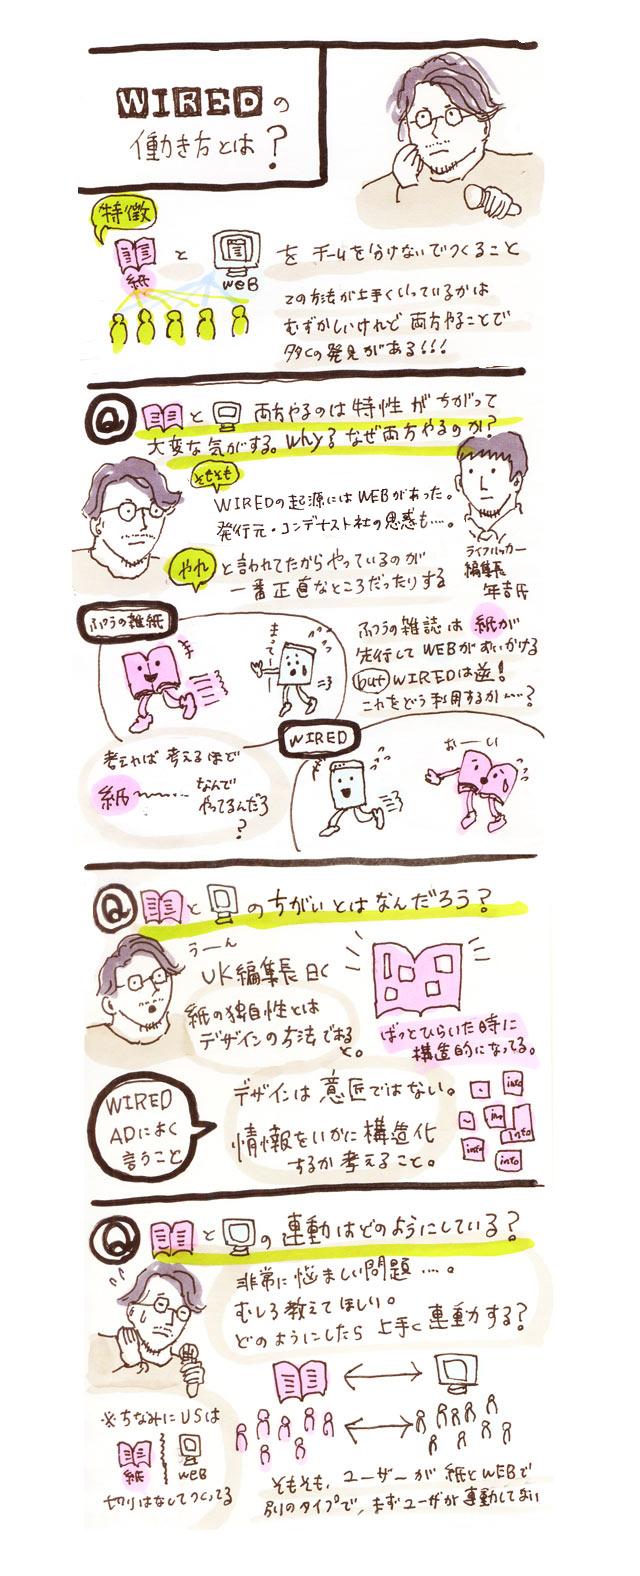 WIREDの
働き方とは?
特徴
紙
と
WEB
を チームを分けないでつくること
この方法が上手くいっているかは
むずかしいけれど 両方やることで
多くの発見がある!!!
Q と 両方やるのは 特性 が ちがって
大変な気がする。why? なぜ両方やるのか?
そもそも
WIREDの起源には WEBがあった。
発行元・コンデナスト社の思惑も…。
やれ と言われてたからやっているのが
一番正直なところだったりする
ライフハッカー
編集長
年吉氏
ふつうの雑紙
まってー
ふつうの雑誌は 紙が
先行して WEBがおいかける
but WIREDは逆!
これをどう利用するか…?
WIRED
おーい
考えれば 考えるほど
紙 なんで
やってるんだろ
?
Q と の ちがいとは なんだろう?
うーん
UK編集長曰く
紙の独自性とは
デザインの方法である
と。
ぱっとひらいた時に
構造的になってる。
WIRED
ADによく
言うこと
デザインは 意匠ではない。
情報をいかに 構造化
するか 考えること。
info
info
info
info
info
Q と の 連動はどのようにしている?
非常に悩ましい問題…。
むしろ教えてほしい。
どのようにしたら 上手く連動する?
※ちなみにUSは
紙
WEB
切りはなしてつくってる
そもそも、ユーザーが 紙とWEBで
別のタイプで、まずユーザが連動してない